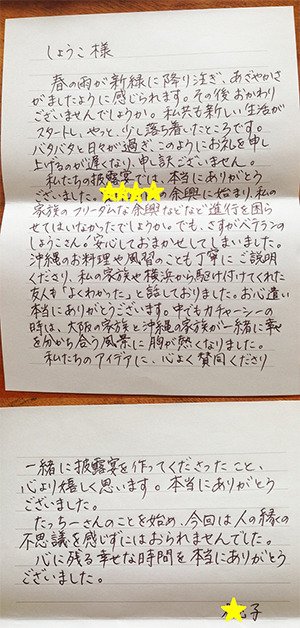 しょうこ様
春の雨が新緑に降り注ぎ、あざやかさ
がましたように感じられます。その後おかわり
ございませんでしょうか。私共も新しい生活が
スタートし、やっと、少し落ち着いたところです。
バタバタと日々が過ぎ、このようにお礼を申し
上げるのが遅くなり、申し訳ございません。
私たちの披露宴では、本当にありがとう
ございました。の余興に始まり、私の
家族のフリーダムな余興などなど進行を困ら
せてはいなかったでしょうか。でも、さすがベテランの
しょうこさん。安心しておまかせしてしまいました。
沖縄のお料理や風習のことも丁寧にご説明
くださり、私の家族や横浜から駆け付けてくれた
友人も「よくわかった」と話しておりました。お心遣い
本当にありがとうございます。中でもカチャーシーの
時は、大阪の家族と沖縄の家族が一緒に幸せ
を分かち合う風景に胸が熱くなりました。
私たちのアイデアに、心よく賛同くださり
一緒に披露宴を作ってくださったこと、
心より嬉しく思います。本当にありがとう
ございました。
たっちーさんのことを始め、今回は人の縁の
不思議を感じずにはおられませんでした。
心に残る幸せな時間を本当にありがとう
ございました。
子